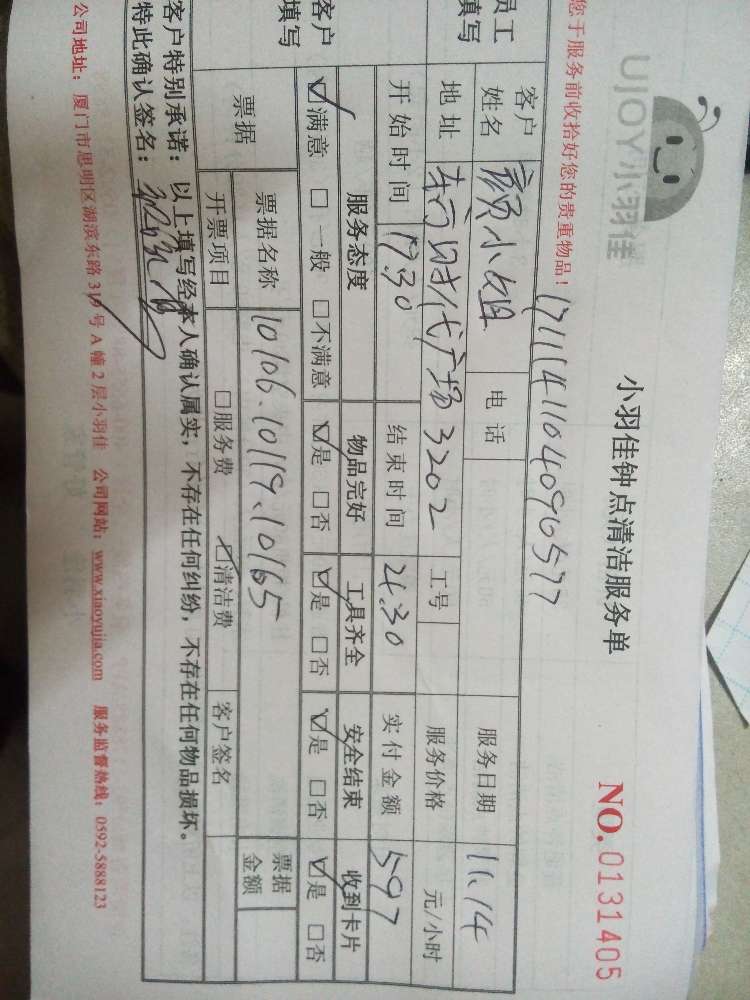 UJOY小羽佳
小羽佳钟点清洁服务单
NO. 0131405
您于服务前收拾好您的贵重物品!
1711141104096577
员工填写
客户姓名 颜小姐 电话 服务日期 11.14
地址 时代广场3202 工号 服务价格 元/小时
开始时间 17.30 结束时间 21.30 实付金额 597
客户填写
服务态度 物品完好 工具齐全 安全结束 收到卡片
☑满意 □一般 □不满意 ☑是 □否 ☑是 □否 ☑是 □否 ☑是 □否
票据 票据名称 10106.10119.10165 票据金额
开票项目 □服务费 ☑清洁费 客户签名
客户特别承诺:以上填写经本人确认属实,不存在任何纠纷,不存在任何物品损坏。
特此确认签名:
公司地址:厦门市思明区湖滨东路319号A幢2层小羽佳 公司网站:www.xiaoyujia.com 服务监督热线:0592-5888123